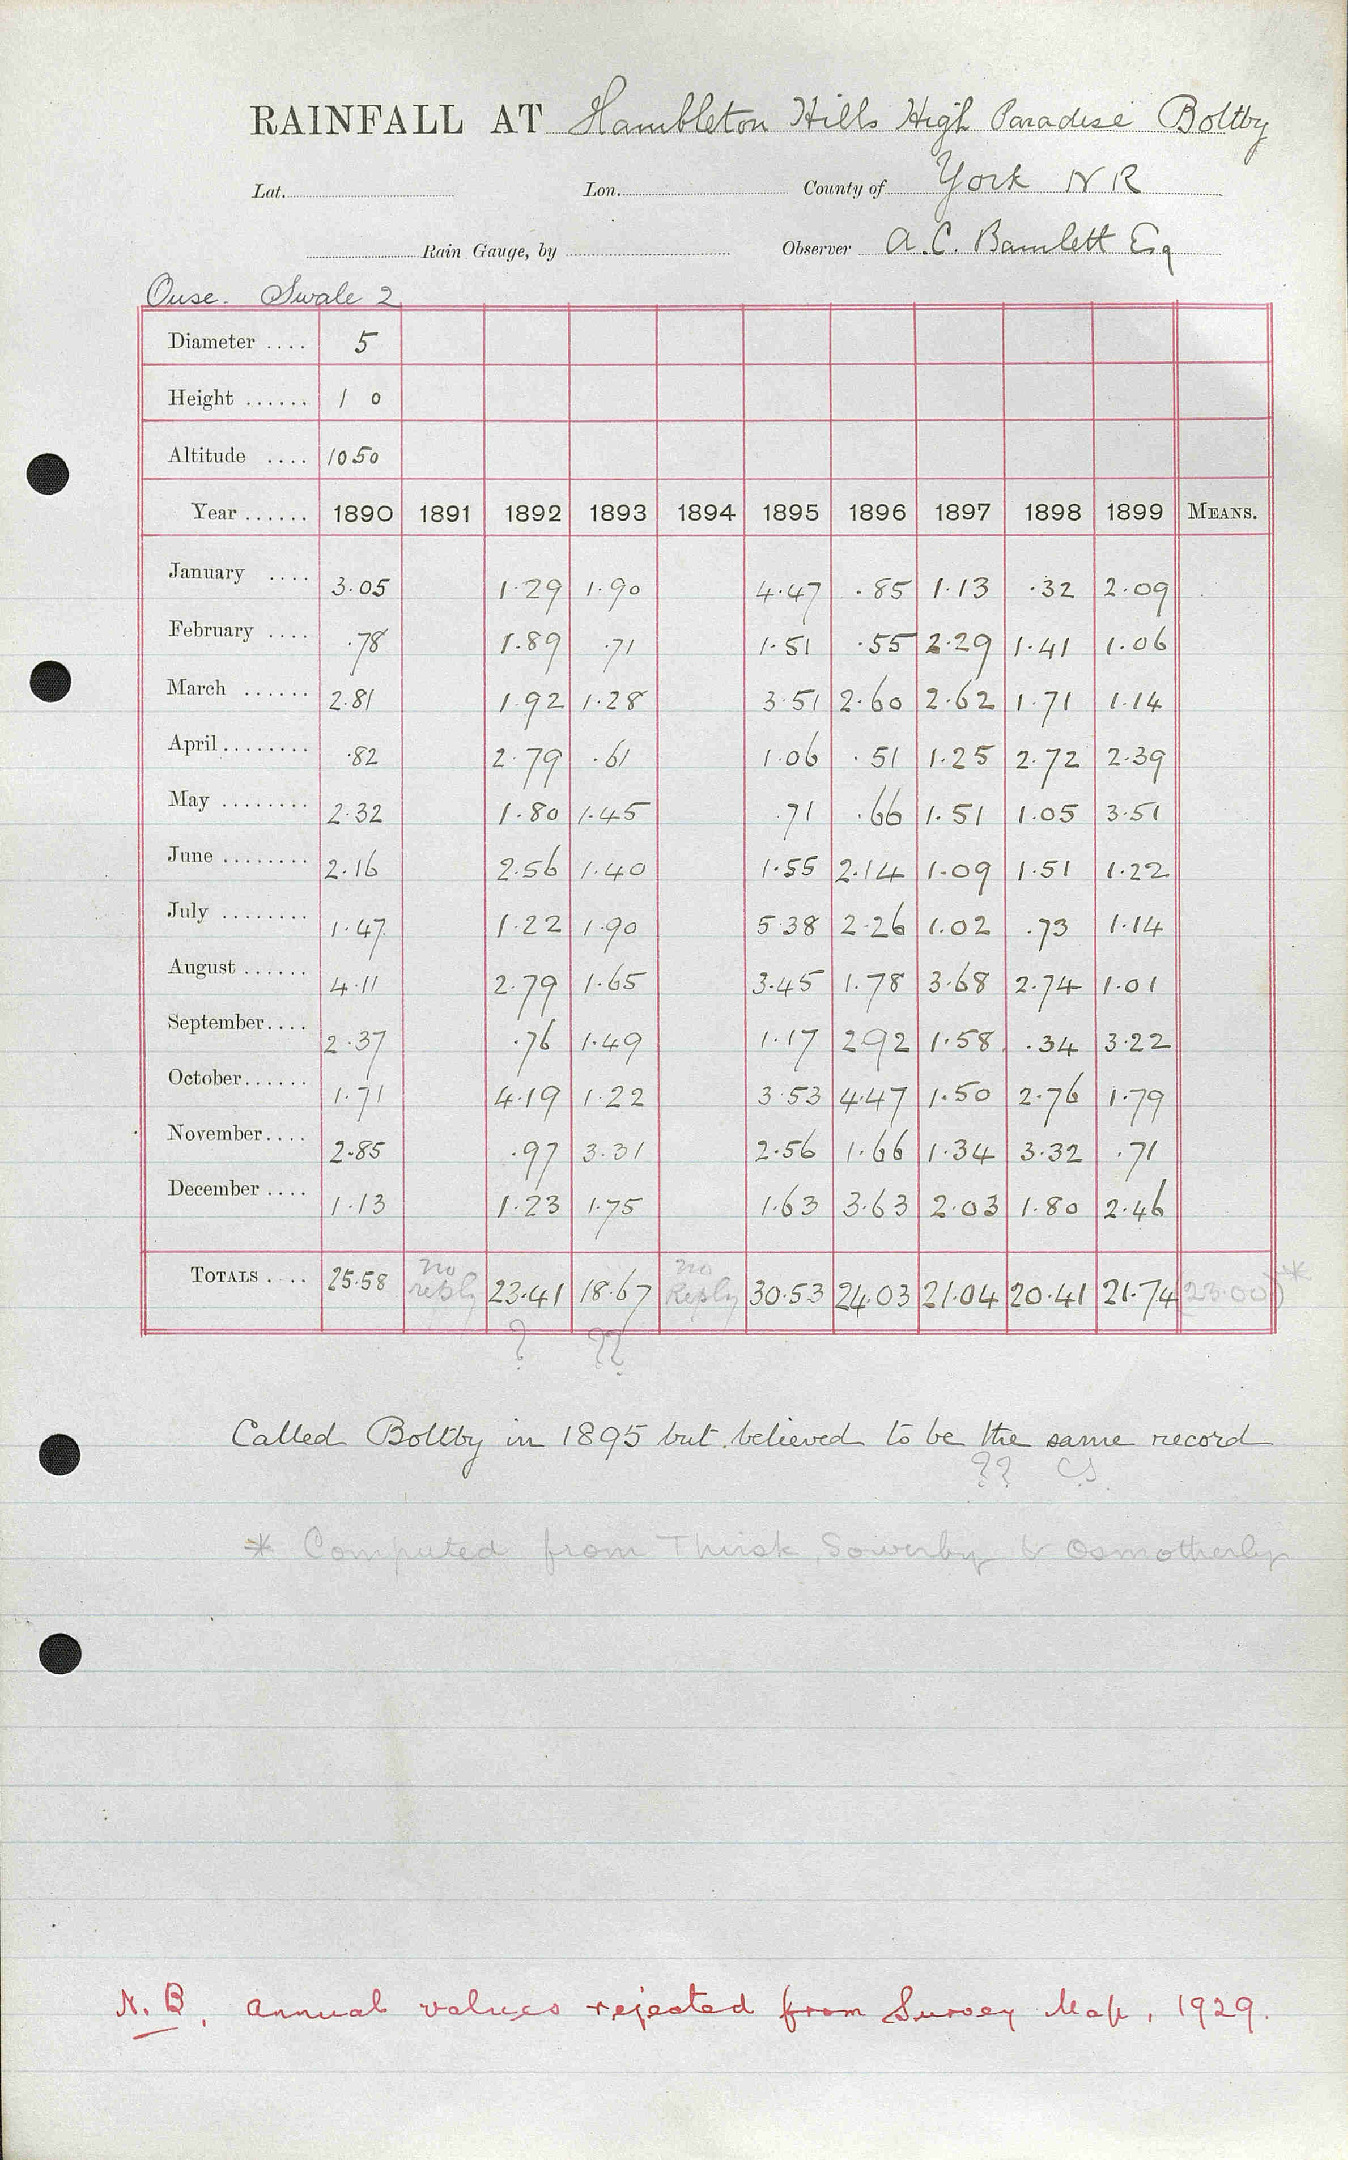 RAINFALL AT Hambleton Hills High Paradise Boltby
Lat. Lon. County of York N R
Rain Gauge, by Observer A. C. Bamlett Esq
Ouse. Swale 2
Diameter .... 5
Height ...... 1 0
Altitude .... 1050
Year ...... 1890 1891 1892 1893 1894 1895 1896 1897 1898 1899 MEANS.
January .... 3.05 1.29 1.90 4.47 .85 1.13 .32 2.09
February .... .78 1.89 .71 1.51 .55 2.29 1.41 1.06
March ...... 2.81 1.92 1.28 3.51 2.60 2.62 1.71 1.14
April ........ .82 2.79 .61 1.06 .51 1.25 2.72 2.39
May ........ 2.32 1.80 1.45 .71 .66 1.51 1.05 3.51
June ........ 2.16 2.56 1.40 1.55 2.14 1.09 1.51 1.22
July ........ 1.47 1.22 1.90 5.38 2.26 1.02 .73 1.14
August ...... 4.11 2.79 1.65 3.45 1.78 3.68 2.74 1.01
September .... 2.37 .76 1.49 1.17 2.92 1.58 .34 3.22
October ...... 1.71 4.19 1.22 3.53 4.47 1.50 2.76 1.79
November .... 2.85 .97 3.31 2.56 1.66 1.34 3.32 .71
December .... 1.13 1.23 1.75 1.63 3.63 2.03 1.80 2.46
TOTALS .... 25.58 no reply 23.41 18.67 no Reply 30.53 24.03 21.04 20.41 21.74 (23.00)*
? ??
Called Boltby in 1895 but believed to be the same record
?? CS.
* Computed from Thirsk, Sowerby & Osmotherly
N.B. annual values rejected from Survey Map, 1929.